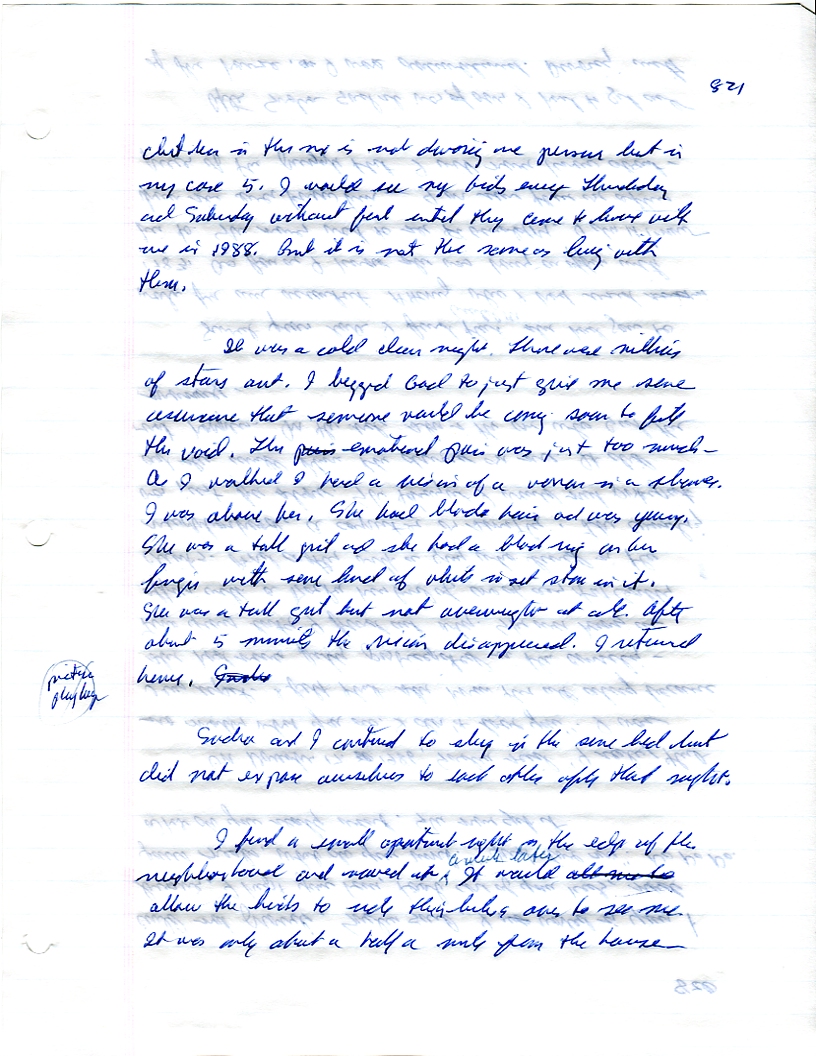 821
children in this is not divorcing one person but in
my case 5. I would see my kids every Thursday
and Saturday without fail until they came to live with
me in 1988. But it is not the same as living with
them.
It was a cold clear night. There were millions
of stars out. I begged God to just give me some
assurance that someone would be coming soon to fill
the void. The pain emotional pain was just too much-
As I walked I had a vision of a woman in a shower.
I was above her. She had blonde hair and was young.
She was a tall girl and she had a ring on her
finger with some kind of white inset stone in it.
She was a tall girl but not overweight at all. After
about 5 minutes the vision disappeared. I returned
home. Sandra
picture
Sandra and I continued to sleep in the same bed but
did not expose ourselves to each other after that night.
I found a small apartment right on the edge of the
neighborhood and moved in a while later. It would
allow the kids to ride their bikes over to see me.
It was only about a half a mile from the house